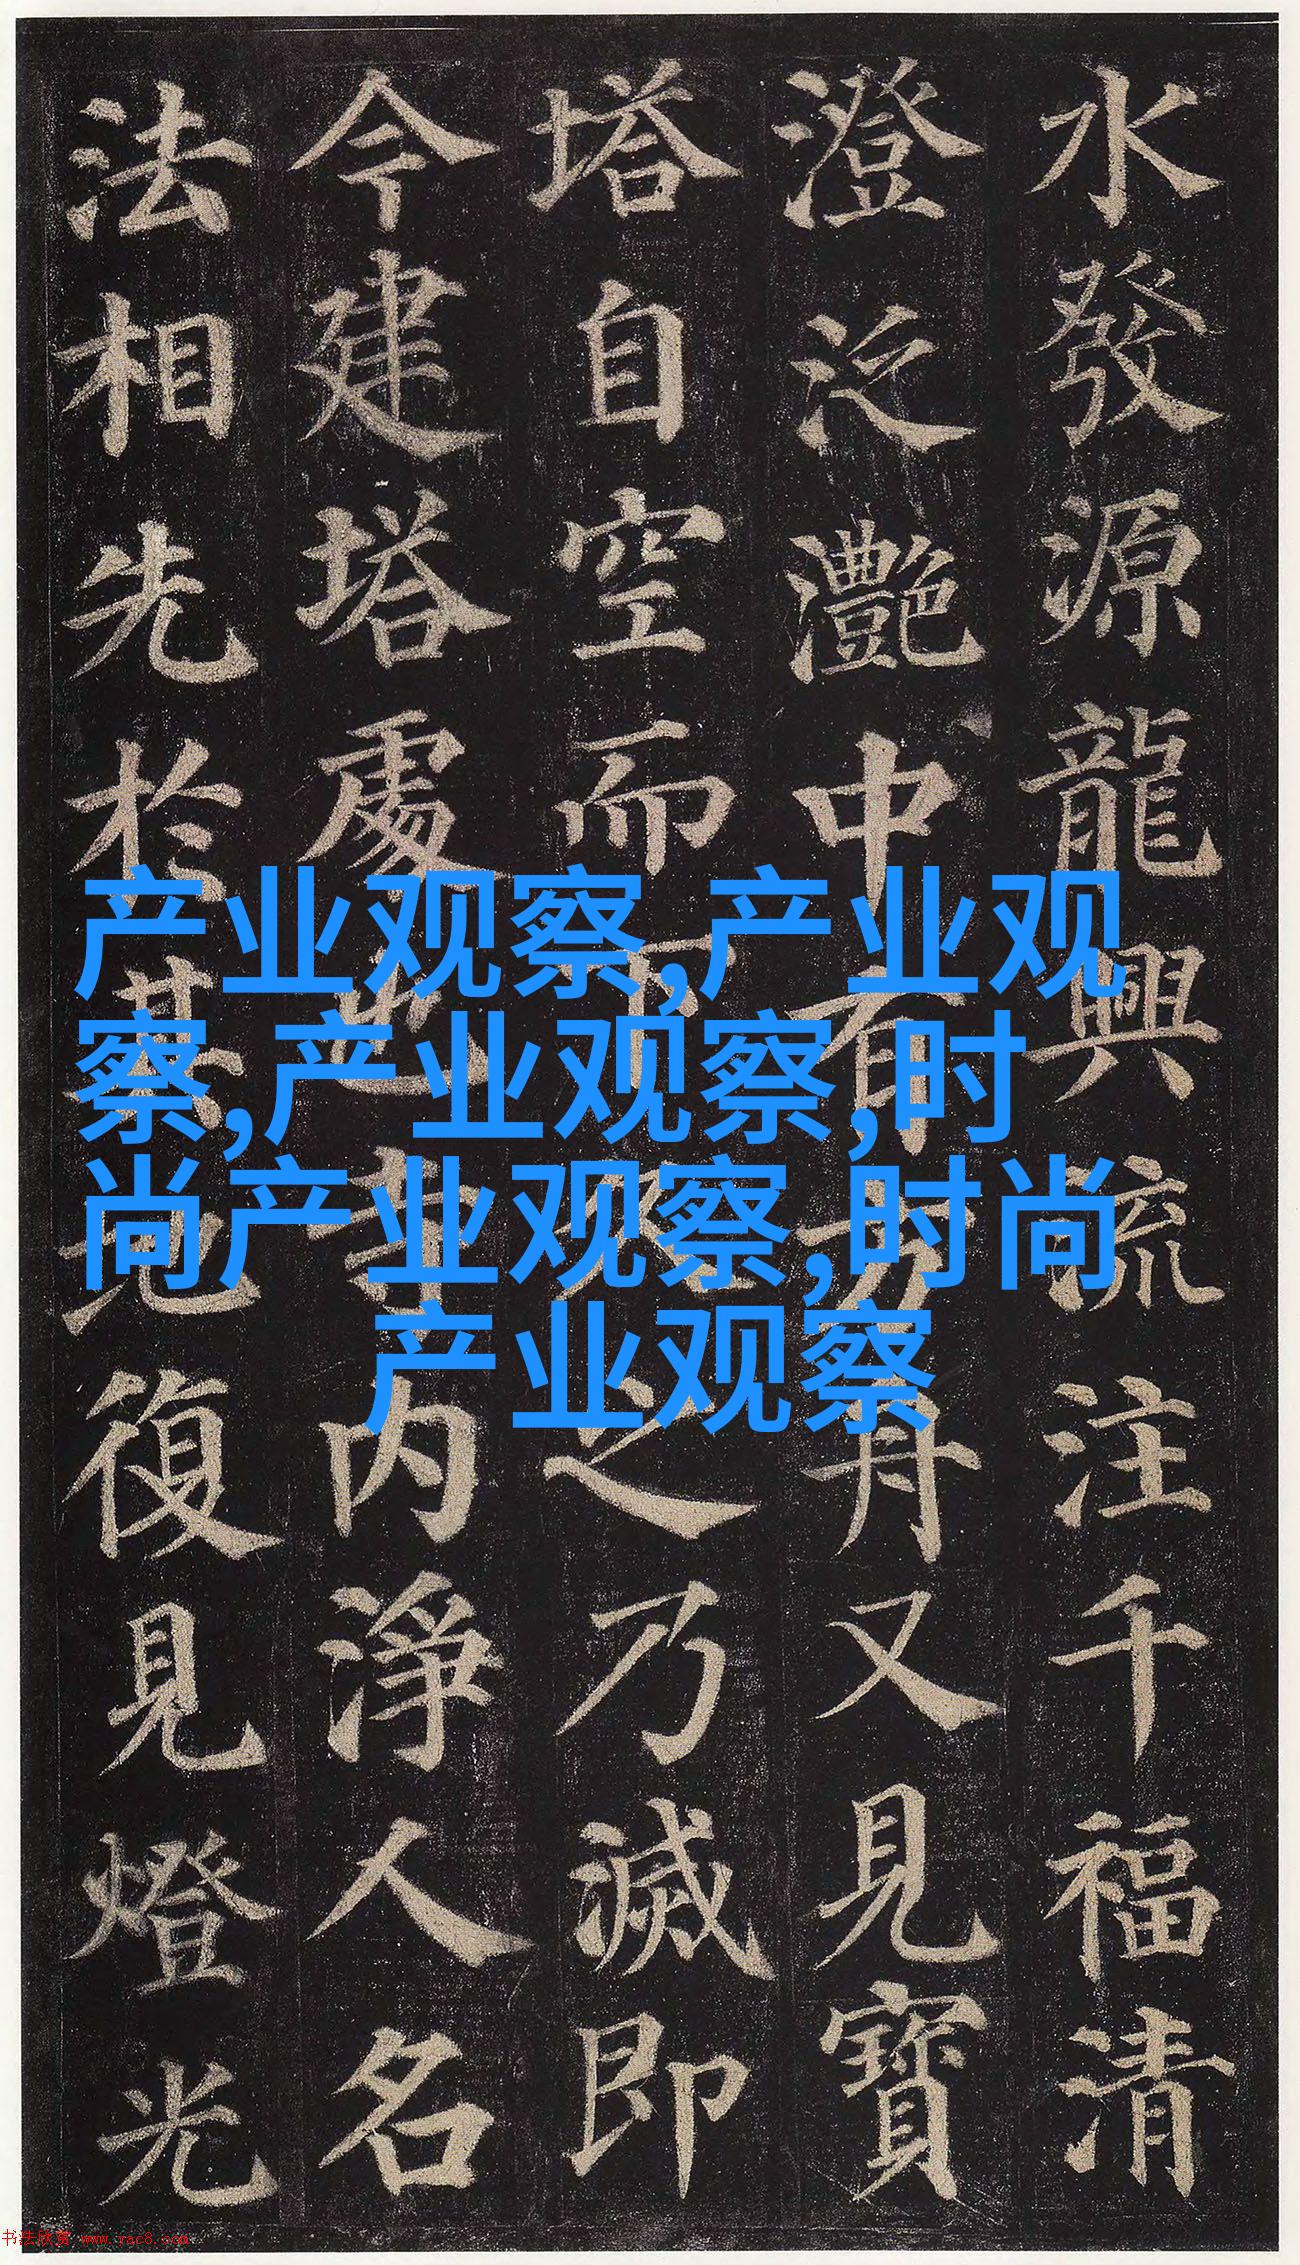 水發源龍興流注千福清
澄泛灧中有方舟又見寶
塔自空而下久之乃滅即
今建塔處也寺内淨人名
法相先於其地復見燈光
产业观察,产业观
察,产业观察,时
尚产业观察,时尚
产业观察
书法欣赏 www.yac8.com